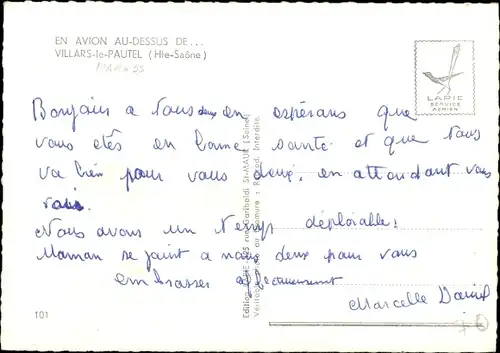 EN AVION AU-DESSUS DE...
VILLARS-le-PAUTEL (Hte-Saône)
LAPIE
SERVICE
AERIEN
Bonjour a vous deux en espérans que
vous etes en bonne santé et que tous
va bien pour vous deux. en attendant vous
voir.
Nous avons un temps déploiable!
Maman se joint a nous deux pour vous
embrasser affectueusement
Marcelle Daniel
101